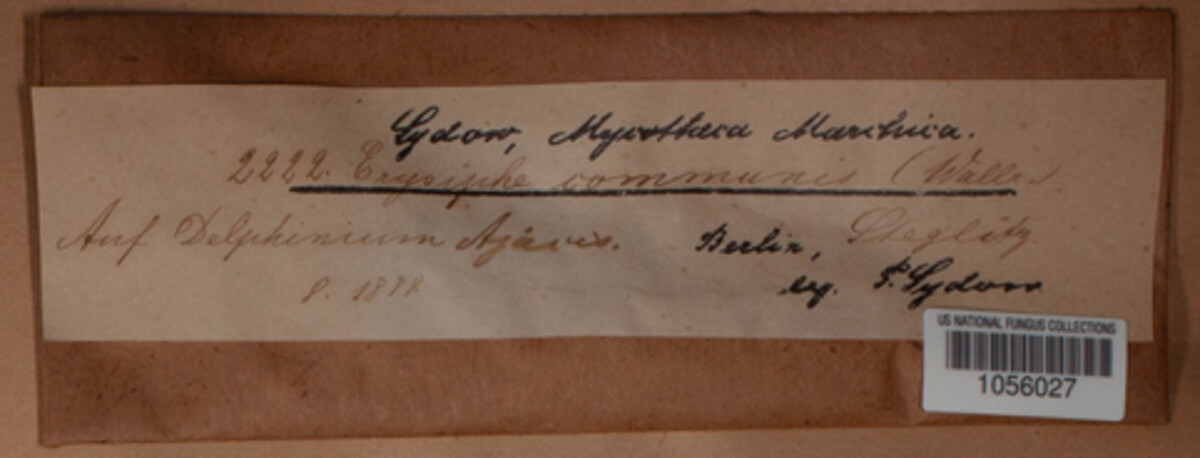 Sydow, Mycotheca Marchica.
2222. Erysiphe communis (Wallr.)
Auf Delphinium Ajacis. Berlin, Steglitz
8. 1888. leg. P. Sydow
US NATIONAL FUNGUS COLLECTIONS
1056027